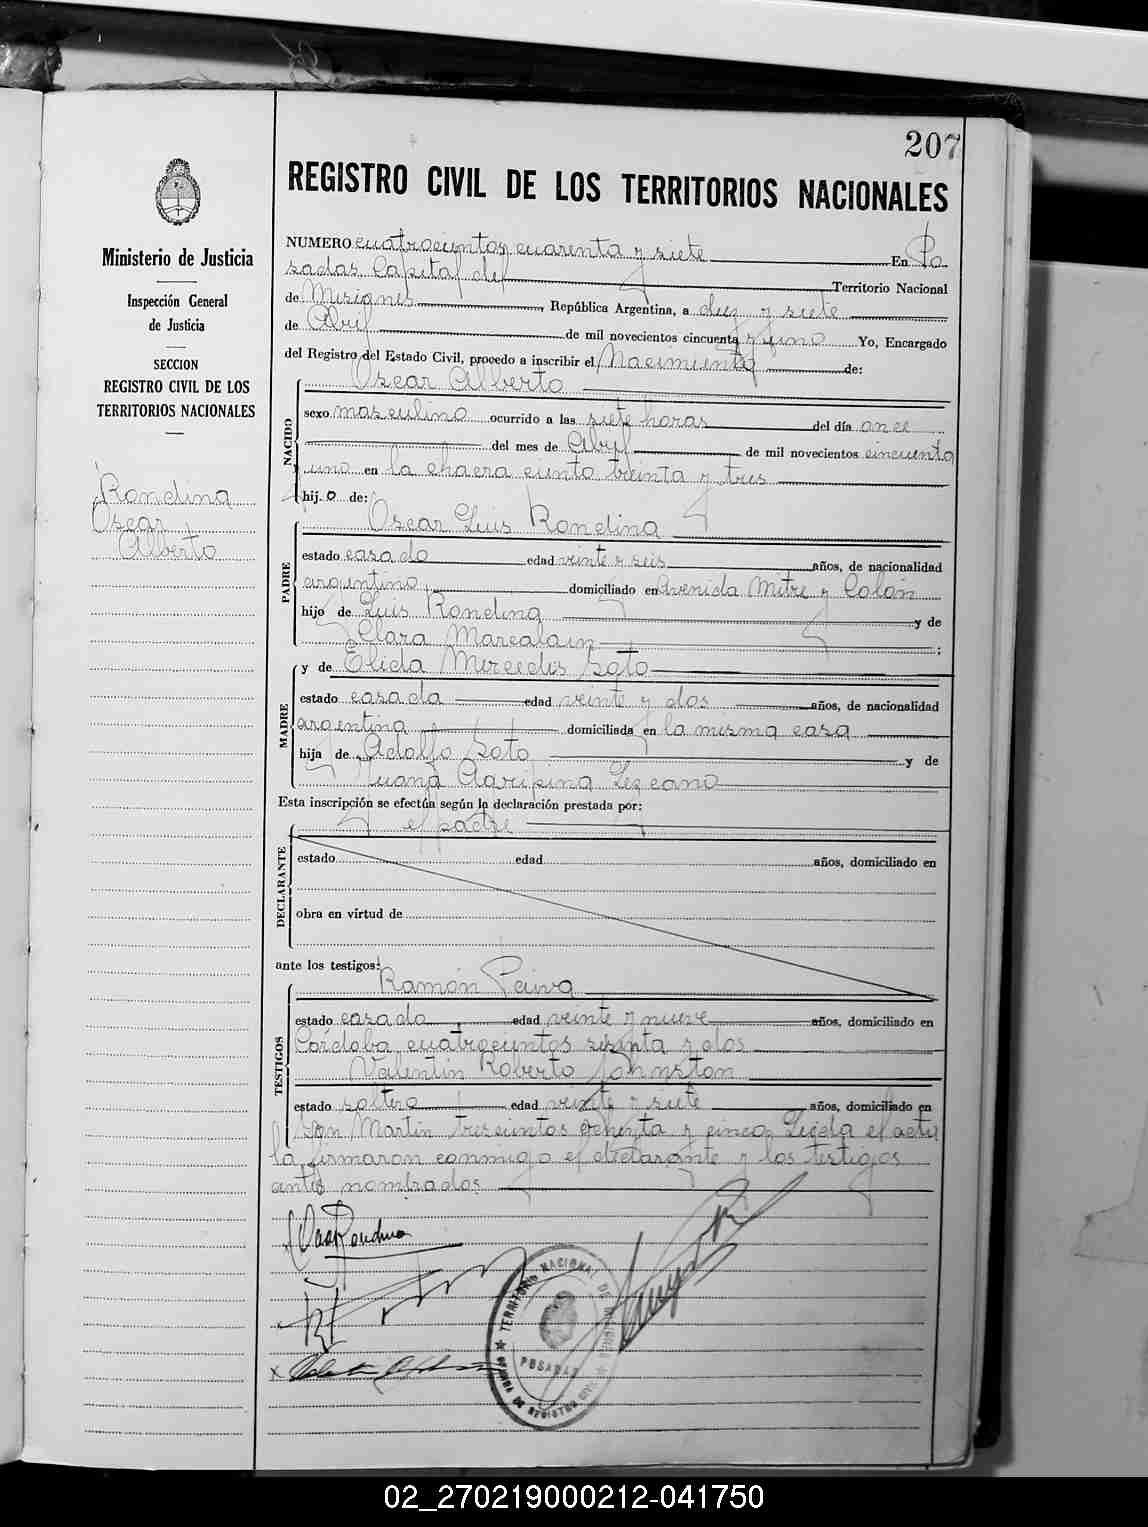 207
REGISTRO CIVIL DE LOS TERRITORIOS NACIONALES
Ministerio de Justicia
Inspección General
de Justicia
SECCION
REGISTRO CIVIL DE LOS
TERRITORIOS NACIONALES
Rondina
Oscar
Alberto
NUMERO cuatrocientos cuarenta y siete En Po
sadas Capital del Territorio Nacional
de Misiones, República Argentina, a diez y siete
de Abril de mil novecientos cincuenta y uno Yo, Encargado
del Registro del Estado Civil, procedo a inscribir el Nacimiento de:
NACIDO
Oscar Alberto
sexo masculino ocurrido a las siete horas del día once
del mes de Abril de mil novecientos cincuenta
uno en la chacra ciento treinta y tres
hijo de:
PADRE
Oscar Luis Rondina
estado casado edad veinte y seis años, de nacionalidad
argentino, domiciliado en Avenida Mitre y Colón
hijo de Luis Rondina y de
Clara Marcalain;
MADRE
y de Elida Mercedes Soto
estado casada edad veinte y dos años, de nacionalidad
argentina domiciliada en la misma casa
hija de Adolfo Soto y de
Juana Agripina Lezcano
Esta inscripción se efectúa según la declaración prestada por:
el padre
DECLARANTE
estado edad años, domiciliado en
obra en virtud de
ante los testigos:
TESTIGOS
Ramón Leiva
estado casado edad veinte y nueve años, domiciliado en
Córdoba cuatrocientos sesenta y dos
Valentin Roberto Johnston
estado soltero edad veinte y siete años, domiciliado en
San Martin trescientos ochenta y cinco Leida el acta
la firmaron conmigo el declarante y los testigos
antes nombrados
TERRITORIO NACIONAL DE MISIONES
POSADAS
OFICINA DE REGISTRO CIVIL
02_270219000212-041750